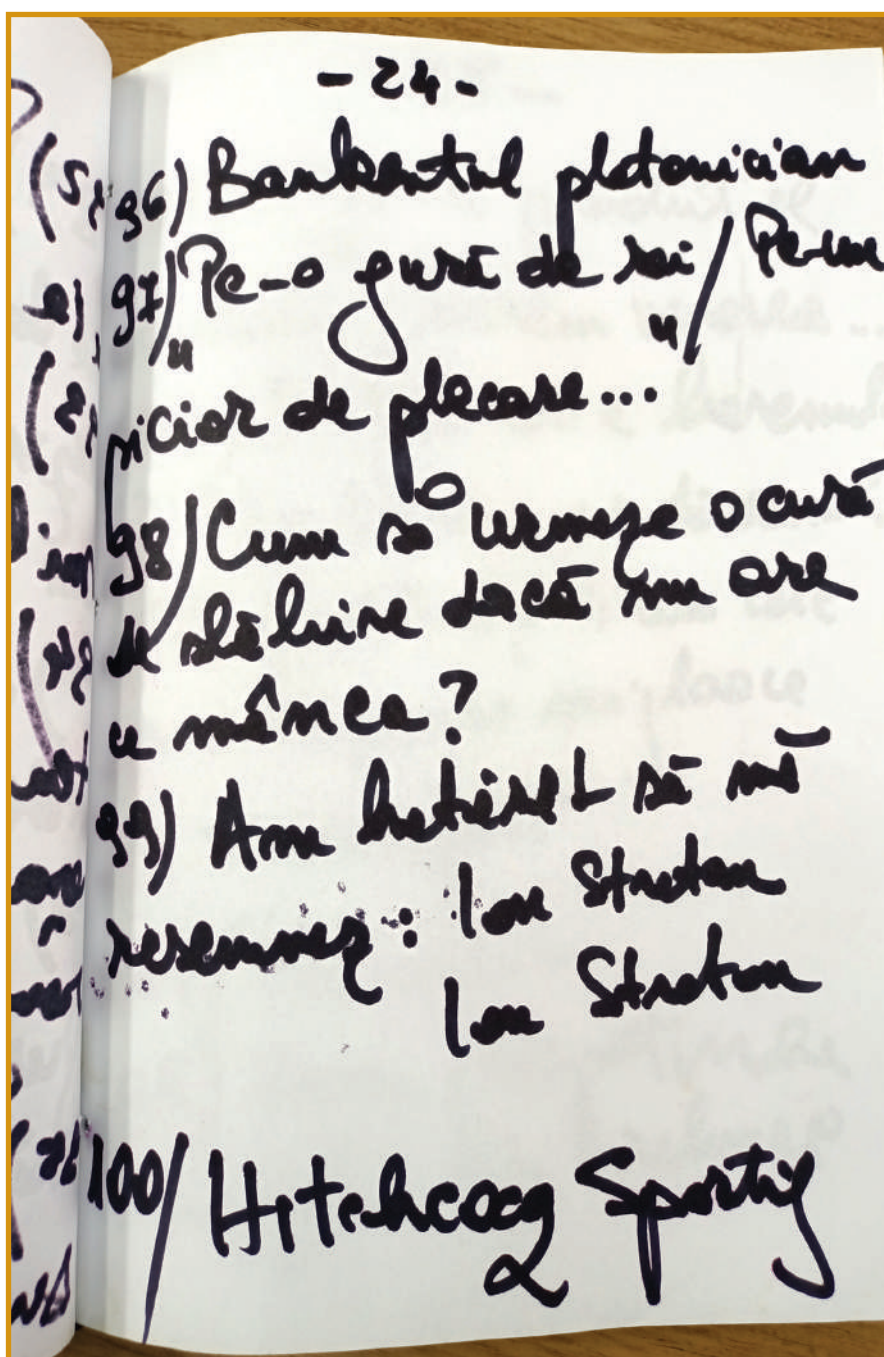 - 24 -
96) Bankentul platonician
97) "Pe-o gură de rai / Pe-un
picior de plecare..."
98) Cum să urmeze o cură
de slăbire dacă nu are
ce mânca?
99) Am hotărât să mă
resemnez: Ion Stratan
Ion Stratan
100/ Hitchcocq Sportif